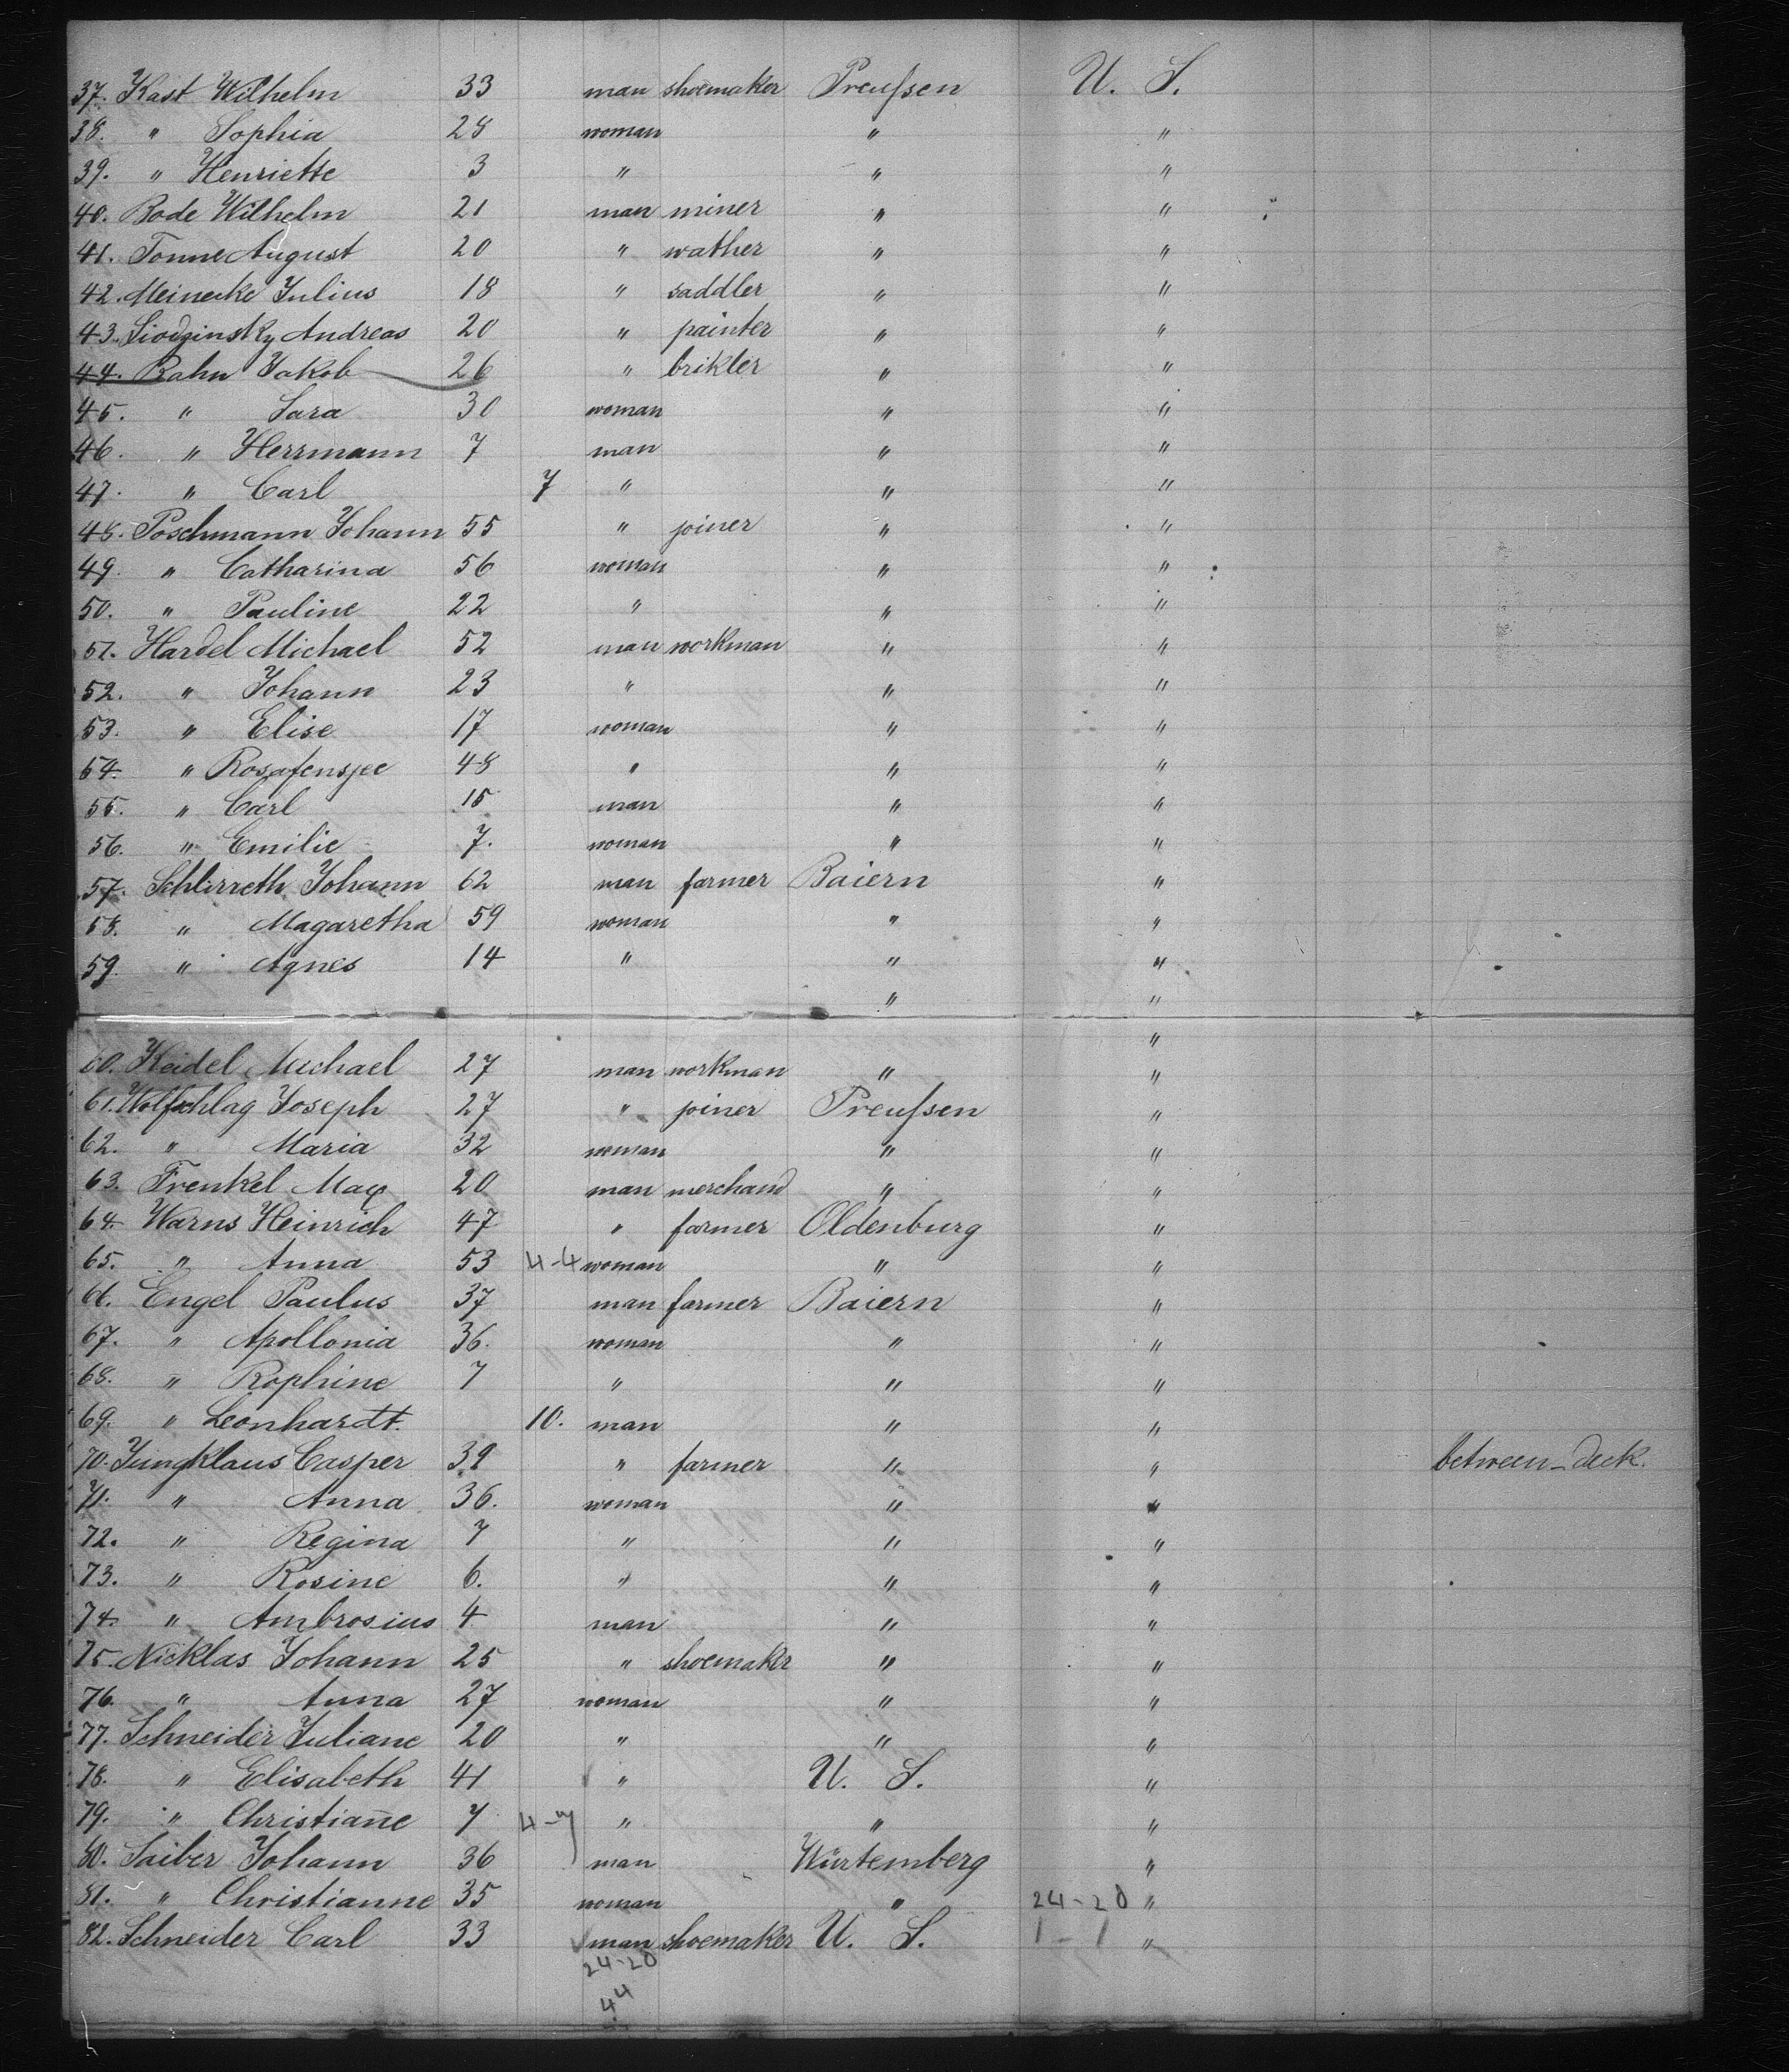 37. Kast Wilhelm 33 man shoemaker Preußen U. S.
38. " Sophia 28 woman " "
39. " Henriette 3 " " "
40. Bode Wilhelm 21 man miner " "
41. Tonne August 20 " wather " "
42. Meinecke Julius 18 " saddler " "
43. Siodzinsky Andreas 20 " painter " "
44. Rahn Jakob 26 " brikler " "
45. " Sara 30 woman " "
46. " Herrmann 7 man " "
47. " Carl 7 " " "
48. Poschmann Johann 55 " joiner " "
49. " Catharina 56 woman " "
50. " Pauline 22 " " "
51. Hardel Michael 52 man workman " "
52. " Johann 23 " " "
53. " Elise 17 woman " "
54. " 48 " " "
55. " Carl 15 man " "
56. " Emilie 7. woman " "
57. Johann 62 man farmer Baiern "
58. " Magaretha 59 woman " "
59. " Agnes 14 " " "
" "
"
60. Keidel Michael 27 man workman " "
61. Wolfschlag Joseph 27 " joiner Preußen "
62. " Maria 32 woman " "
63. Frenkel Max 20 man merchand " "
64. Warns Heinrich 47 " farmer Oldenburg "
65. " Anna 53 4-4 woman " "
66. Engel Paulus 37 man farmer Baiern "
67. " Apollonia 36. woman " "
68. " Rophine 7 " " "
69. " Leonhardt. 10. man " "
70. Jungklaus Casper 39 " farmer " " between-deck.
71. " Anna 36. woman " "
72. " Regina 7 " " "
73. " Rosine 6. " " "
74. " Ambrosius 4 man " "
75. Nicklas Johann 25 " shoemaker " "
76. " Anna 27 woman " "
77. Schneider Juliane 20 " " "
78. " Elisabeth 41 " U. S. "
79. " Christiane 7 4-7 " " "
80. Saiber Johann 36 man Würtemberg "
81. " Christianne 35 woman " 24-20 "
82. Schneider Carl 33 man shoemaker U. S. 1-1 "
24-20
44